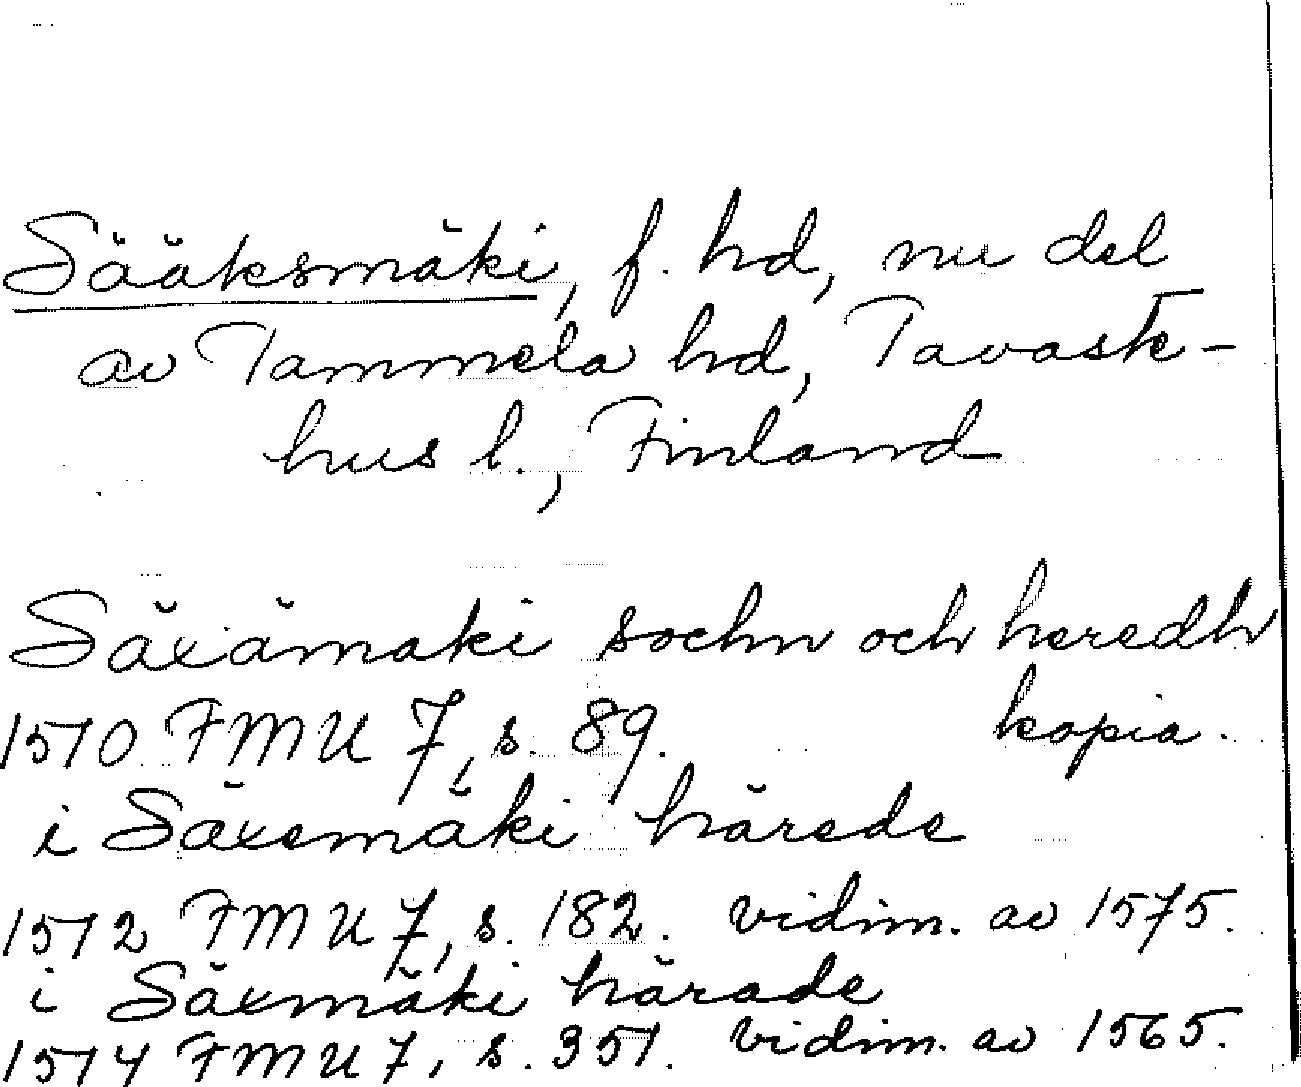 Sääksmäki, f. hd, nu del
av Tammela hd, Tavaste-
hus l., Finland
Säxämäki sochn och heredh
1510 FMU 7, s. 89. kopia.
i Säxemäki härede
1512 FMU 7, s. 182. vidim. av 1575.
i Säxmäki härade
1514 FMU 7, s. 351. vidim. av 1565.